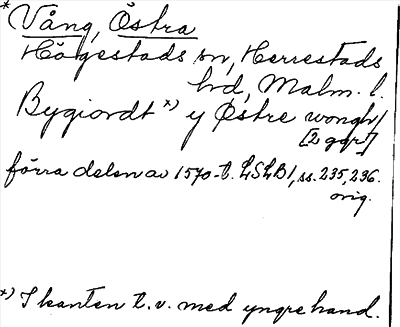 * Vång, Östra
Högestads sn, Herrestads
hd, Malm. l.
Bygiordt *) y Østre wongh/
[2 ggr]
förra delen av 1570-t. LSLB1, ss. 235, 236.
orig.
*) I kanten t.v. med yngre hand.